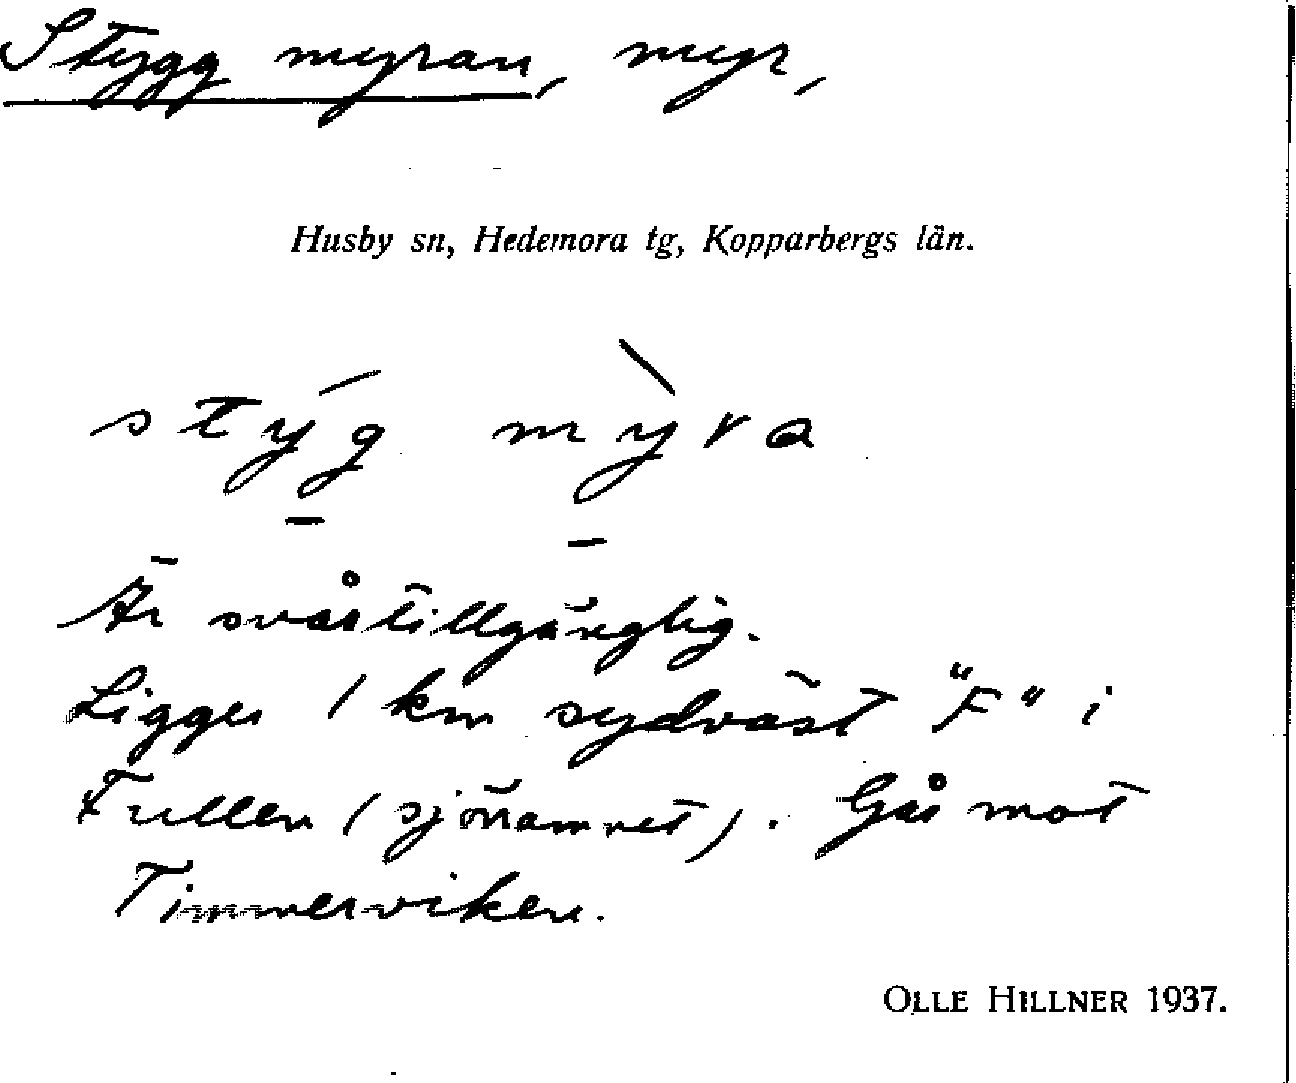 Stygg myran, myr,
Husby sn, Hedemora tg, Kopparbergs län.
stýg mỳra
Är svårtillgänglig.
Ligger 1 km sydväst "F" i
Fullen (sjönamnet). Går mot
Timmerviken.
OLLE HILLNER 1937.